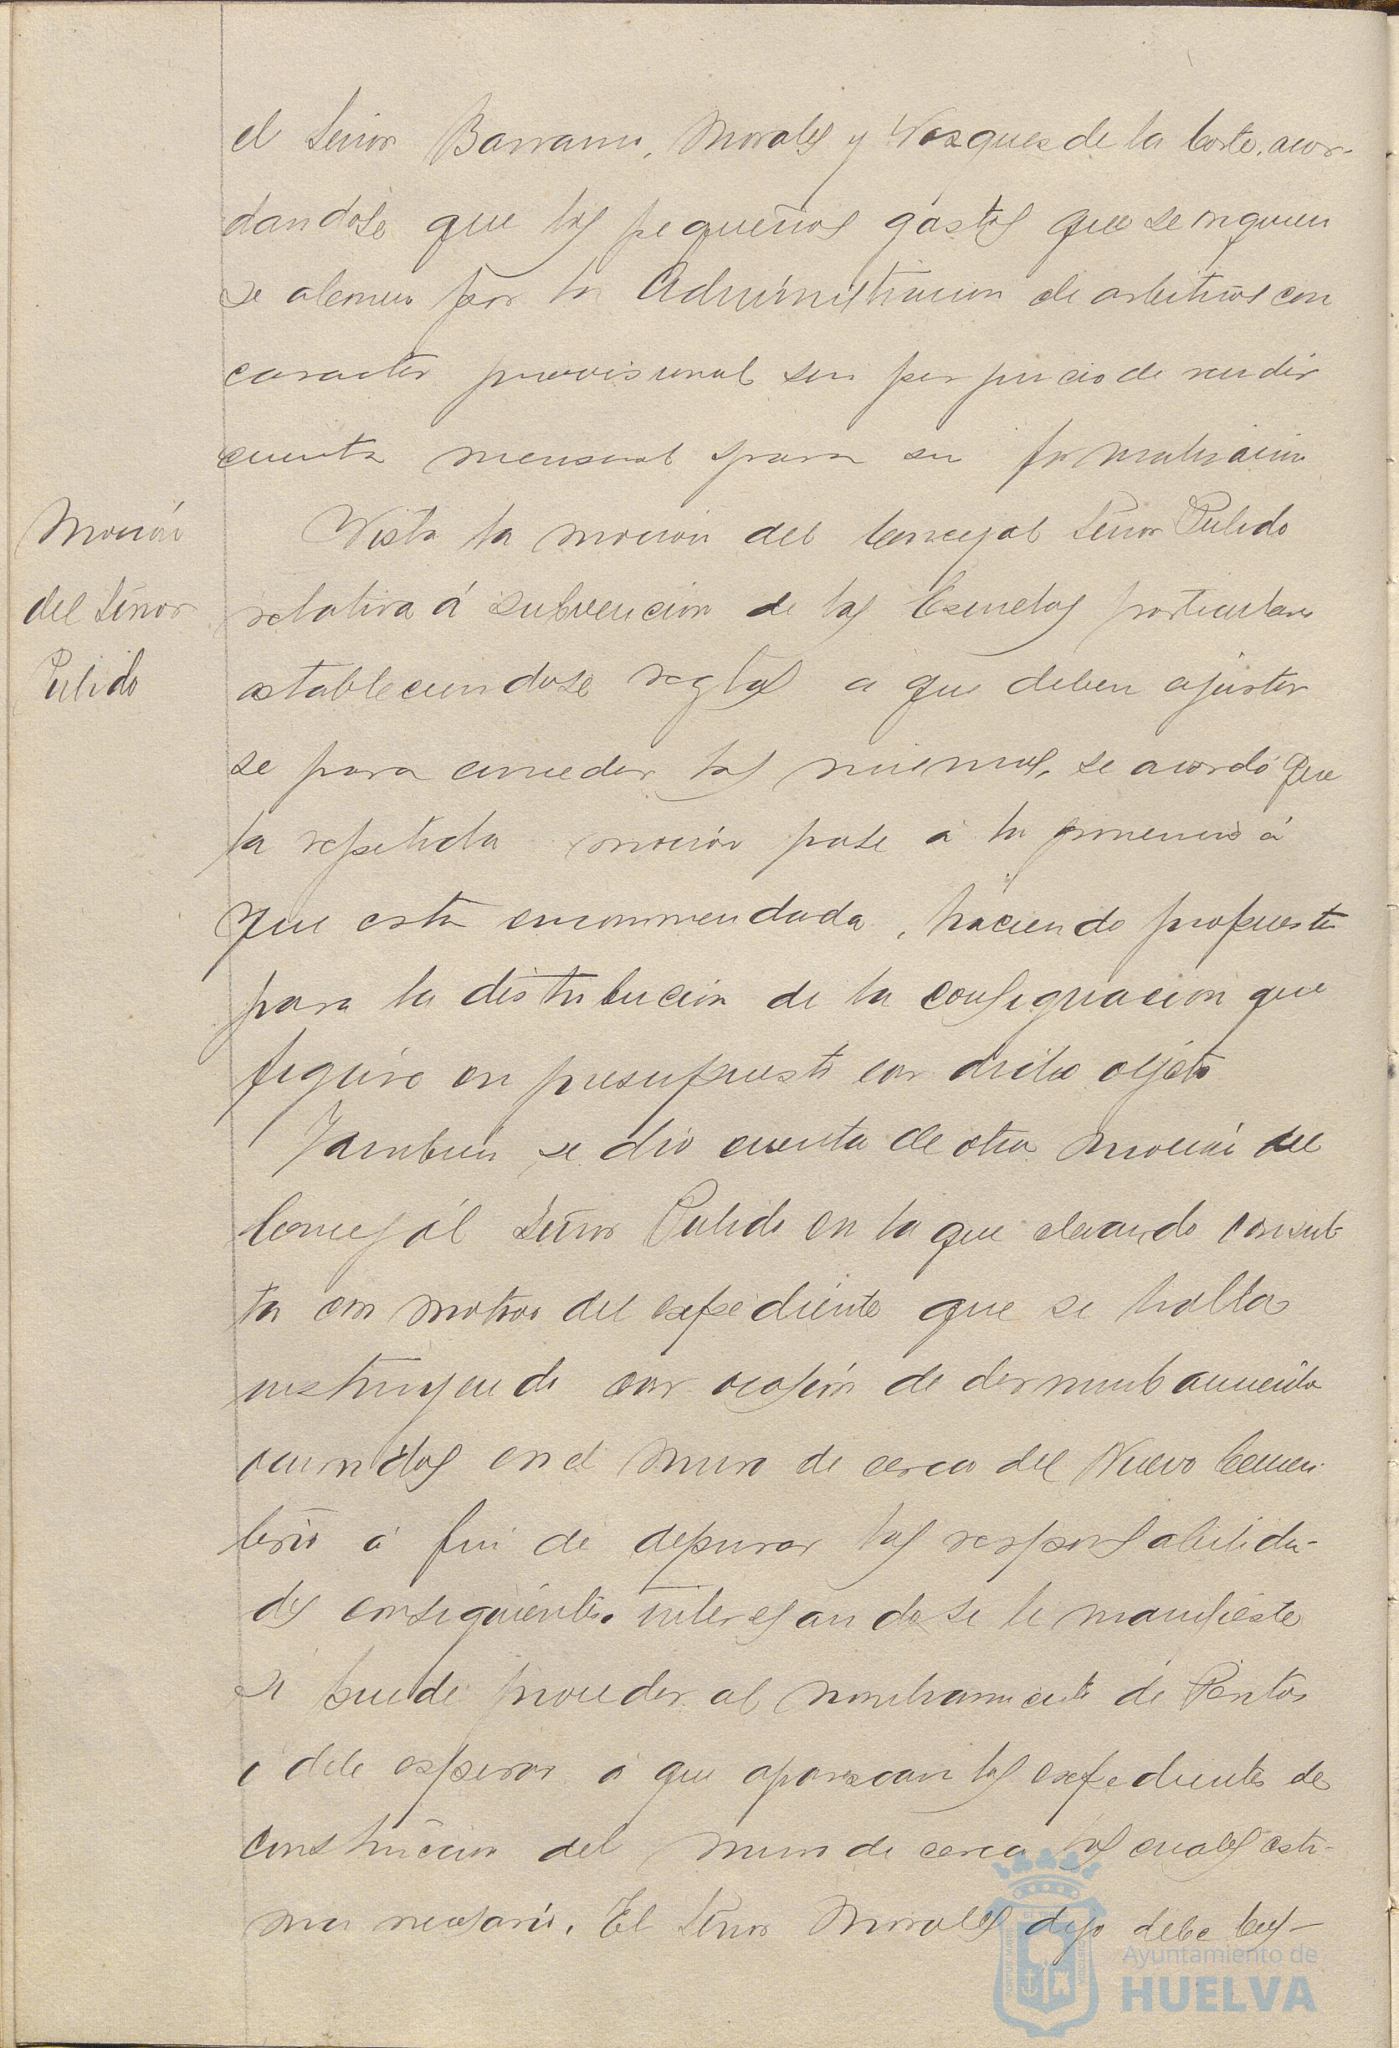 el Señor Barranco, Morales y Vazquez de la Corte, acor-
dandose que los pequeños gastos que se originen
se abonen por la Administracion de arbitrios con
caracter provisional sin perjuicio de rendir
cuenta mensual para su formalizacion
Moción
del Señor
Pulido
Vista la moción del Concejal Señor Pulido
relativa á subvencion de las Escuelas particulares
estableciendose reglas a que deben ajustar
se para conceder las mismas, se acordó que
la repetida moción pase á la ponencia á
que esta encommendada, haciendo propuesta
para la distribucion de la consignacion que
figura en presupuesto con dicho objeto
Tambien se dio cuenta de otra moción del
Concejál Señor Pulido en la que elevando consul-
ta con motivo del expediente que se halla
instruyendo con ocasión de derrumbamientos
ocurridos en el muro de cerca del Nuevo Cemen-
terio á fin de depurar las responsabilida-
des consiguientes, interesando se le manifieste
si puede proceder al nombramiento de Peritos
ó debe esperar á que aparezcan los expedientes de
construccion del muro de cerca los cuales esti-
ma necesario. El Señor Morales dijo debe bus-
Ayuntamiento de
HUELVA